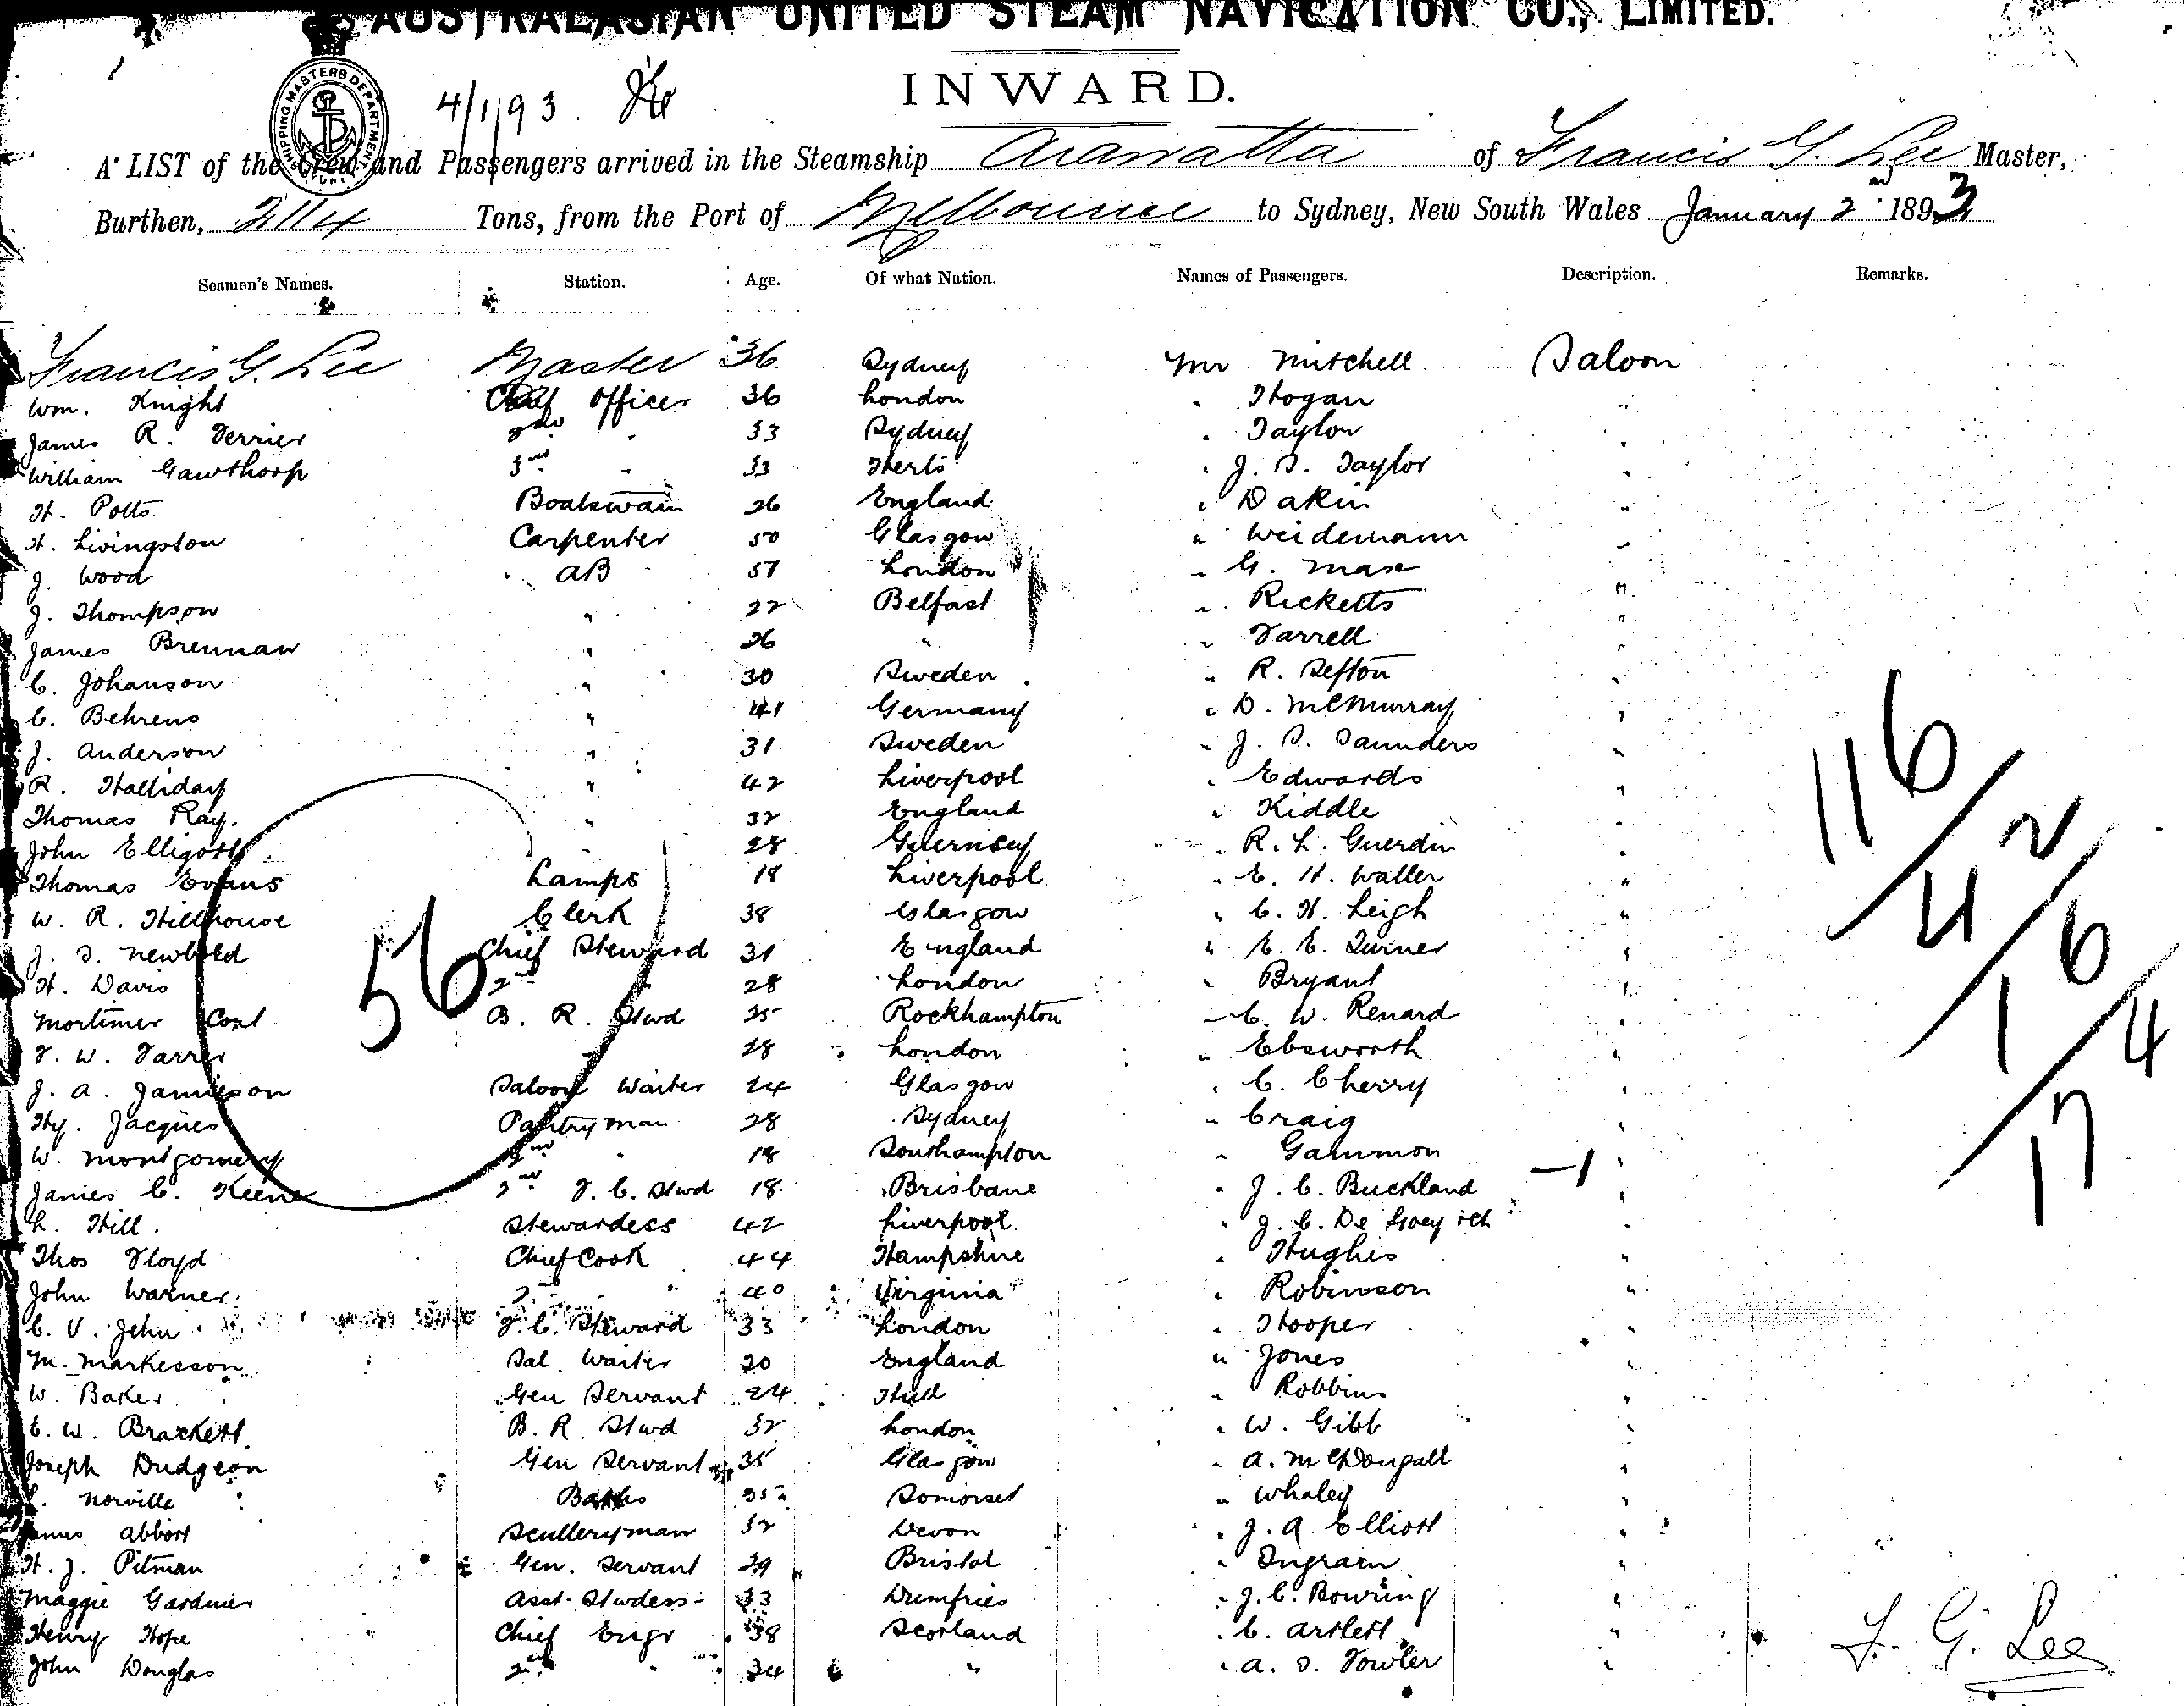 AUSTRALASIAN UNITED STEAM NAVIGATION CO., LIMITED.
INWARD.
SHIPPING MASTERS DEPARTMENT
4/1/93.
A LIST of the Crew and Passengers arrived in the Steamship Arawatta of Francis G. Lee Master,
Burthen, 2114 Tons, from the Port of Melbourne to Sydney, New South Wales January 2nd 1893
Seamen's Names. Station. Age. Of what Nation. Names of Passengers. Description. Remarks.
Francis G. Lee Master 36 Sydney Mr Mitchell Saloon
Wm. Knight Chief Officer 36 London " Hogan "
James R. Ferrier 2nd " 33 Sydney " Taylor "
William Gawthorp 3rd " 33 Herts " J. S. Taylor "
H. Potts Boatswain 26 England " Dakin "
H. Livingston Carpenter 50 Glasgow " Weidemann "
J. Wood AB 51 London " G. Mase "
J. Thompson " 22 Belfast " Ricketts "
James Brennan " 26 " " Farrell "
C. Johanson " 30 Sweden " R. Sefton "
C. Behrens " 41 Germany " D. McMurray "
J. Anderson " 31 Sweden " J. S. Saunders "
R. Halliday " 42 Liverpool " Edwards "
Thomas Ray. " 32 England " Kiddle "
John Elligott " 28 Guernsey " R. L. Guerdin "
Thomas Evans Lamps 18 Liverpool " E. H. Waller "
W. R. Hillhouse Clerk 38 Glasgow " C. H. Leigh "
J. S. Newbold Chief Steward 31 England " E. C. Turner "
H. Davis 2nd " 28 London " Bryant "
Mortimer Cox B. R. Stwd 25 Rockhampton " C. W. Renard "
F. W. Farrer " 28 London " Ebsworth "
J. A. Jamieson Saloon Waiter 24 Glasgow " C. Cherry "
Hy. Jacques Pantryman 28 Sydney " Craig "
W. Montgomery 2nd " 18 Southampton " Gammon "
James C. Keene 2nd F. C. Stwd 18 Brisbane " J. C. Buckland "
L. Hill. Stewardess 42 Liverpool " J. C. De "
Thos Floyd Chief Cook 44 Hampshire " Hughes "
John Warner 2nd " 40 Virginia " Robinson "
C. V. Jehu F. C. Steward 33 London " Hooper "
M. Markesson Sal. Waiter 20 England " Jones "
W. Baker Gen Servant 24 Hull " Robbins "
E. W. Brackett. B. R. Stwd 32 London " W. Gibb "
Joseph Dudgeon Gen Servant 35 Glasgow " A. McDougall "
Norville Baths 35 Somerset " Whaley "
James Abbott Sculleryman 32 Devon " J. A. Elliott "
H. J. Pitman Gen. Servant 29 Bristol " Ingram "
Maggie Gardiner Asst. Stwdess 33 Dumfries " J. C. Bowring "
Henry Hope Chief Engr 38 Scotland " C. Artlett "
John Douglas 2nd " 34 " " A. S. Fowler "
56
116/42/16/174
—1
F. G. Lee